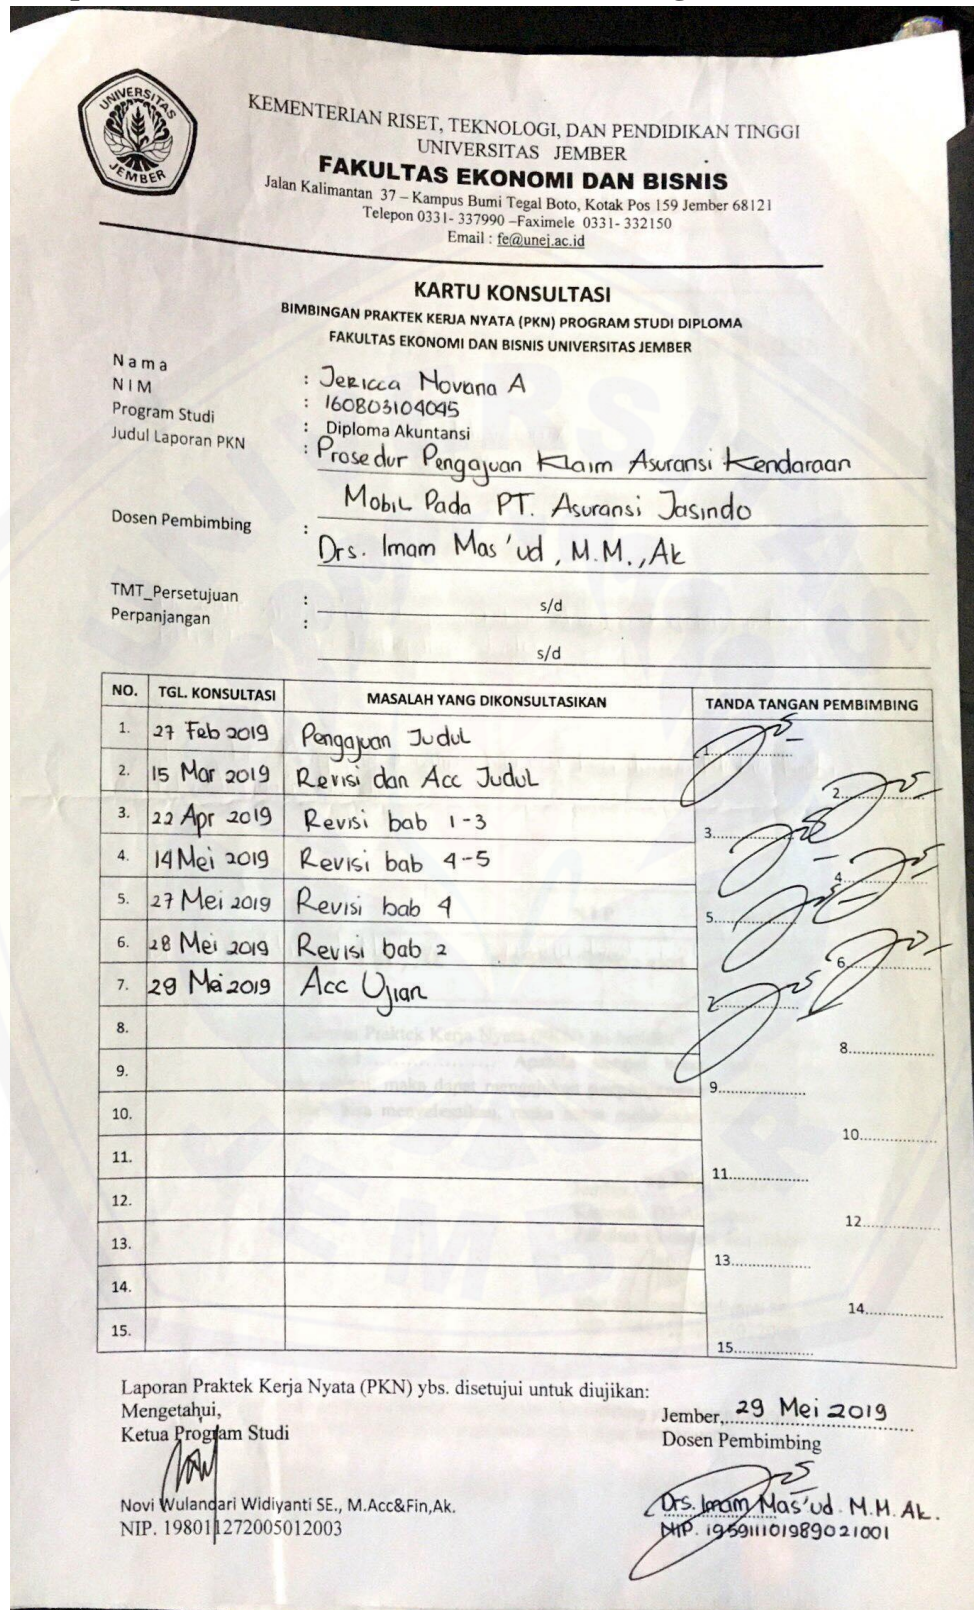 UNIVERSITAS
JEMBER
KEMENTERIAN RISET, TEKNOLOGI, DAN PENDIDIKAN TINGGI
UNIVERSITAS JEMBER
FAKULTAS EKONOMI DAN BISNIS
Jalan Kalimantan 37 – Kampus Bumi Tegal Boto, Kotak Pos 159 Jember 68121
Telepon 0331- 337990 –Faximele 0331- 332150
Email : fe@unej.ac.id
KARTU KONSULTASI
BIMBINGAN PRAKTEK KERJA NYATA (PKN) PROGRAM STUDI DIPLOMA
FAKULTAS EKONOMI DAN BISNIS UNIVERSITAS JEMBER
N a m a : Jericca Novana A
N I M : 160803104045
Program Studi : Diploma Akuntansi
Judul Laporan PKN : Prosedur Pengajuan Klaim Asuransi Kendaraan
Mobil Pada PT. Asuransi Jasindo
Dosen Pembimbing : Drs. Imam Mas'ud, M.M., Ak
TMT_Persetujuan : s/d
Perpanjangan : s/d
NO. TGL. KONSULTASI MASALAH YANG DIKONSULTASIKAN TANDA TANGAN PEMBIMBING
1. 27 Feb 2019 Pengajuan Judul 1.............
2. 15 Mar 2019 Revisi dan Acc Judul 2.............
3. 22 Apr 2019 Revisi bab 1-3 3.............
4. 14 Mei 2019 Revisi bab 4-5 4.............
5. 27 Mei 2019 Revisi bab 4 5.............
6. 28 Mei 2019 Revisi bab 2 6.............
7. 29 Mei 2019 Acc Ujian 7.............
8. 8.............
9. 9.............
10. 10.............
11. 11.............
12. 12.............
13. 13.............
14. 14.............
15. 15.............
Laporan Praktek Kerja Nyata (PKN) ybs. disetujui untuk diujikan:
Mengetahui,
Jember, 29 Mei 2019
Ketua Program Studi
Dosen Pembimbing
Novi Wulandari Widiyanti SE., M.Acc&Fin,Ak.
Drs. Imam Mas'ud. M.M. Ak.
NIP. 198011272005012003
NIP. 195911101989021001